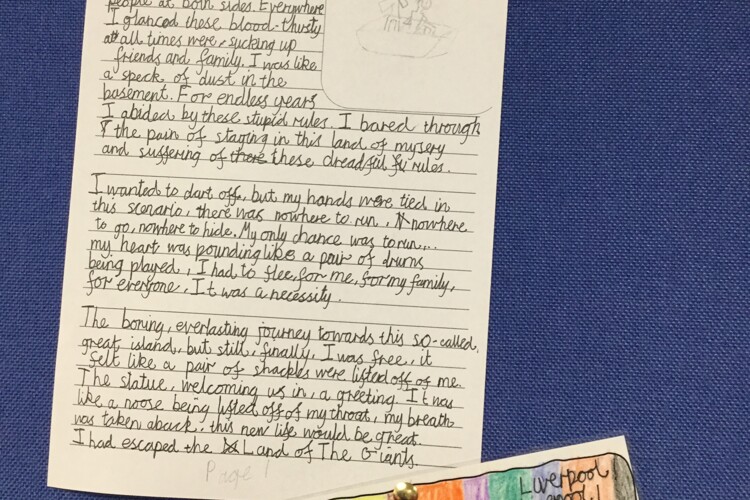 people at both sides. Everywhere
I glanced these blood-thirsty
at all times were, sucking up
friends and family. I was like
a speck of dust in the
basement. For endless years
I abided by these stupid rules. I bared through
the pain of staying in this land of mysery
and suffering of these dreadful rules.
I wanted to dart off, but my hands were tied in
this scenario, there was nowhere to run, nowhere
to go, nowhere to hide. My only chance was to run...
my heart was pounding like a pair of drums
being played, I had to flee, for me, for my family,
for everyone. It was a necessity.
The boring, everlasting journey towards this so-called,
great island, but still, finally, I was free, it
felt like a pair of shackles were lifted off of me.
The statue, welcoming us in, a greeting. It was
like a noose being lifted off of my throat, my breath
was taken aback, this new life would be great.
I had escaped the Land of The Giants.
Page 1
Liverpool